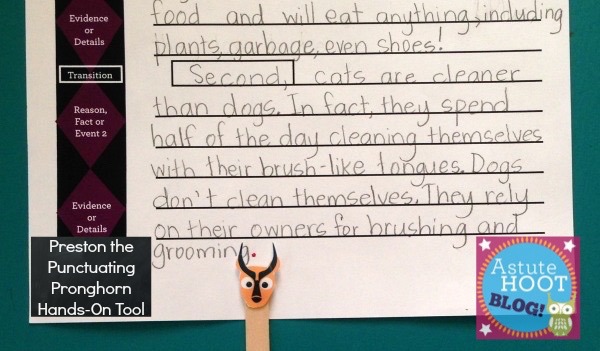 Evidence
or
Details
Transition
Reason,
Fact or
Event 2
Evidence
or
Details
food and will eat anything, including
plants, garbage, even shoes!
Second, cats are cleaner
than dogs. In fact, they spend
half of the day cleaning themselves
with their brush-like tongues. Dogs
don't clean themselves. They rely
on their owners for brushing and
grooming.
Preston the
Punctuating
Pronghorn
Hands-On Tool
Astute
HOOT
BLOG!